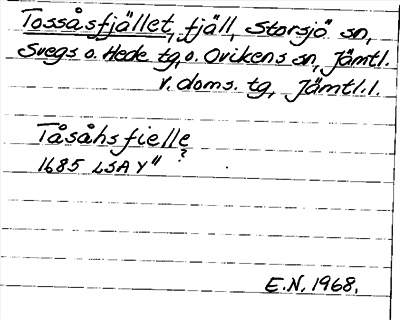 Tossåsfjället, fjäll, Storsjö sn,
Svegs o. Hede tg, o. Ovikens sn, Jämtl.
v. doms. tg, Jämtl. l.
Tåsåhsfielle
?
1685 LSA Y"
E.N. 1968.